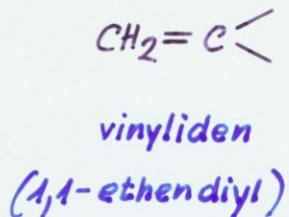 CH₂= C
vinyliden
(1,1-ethendiyl)